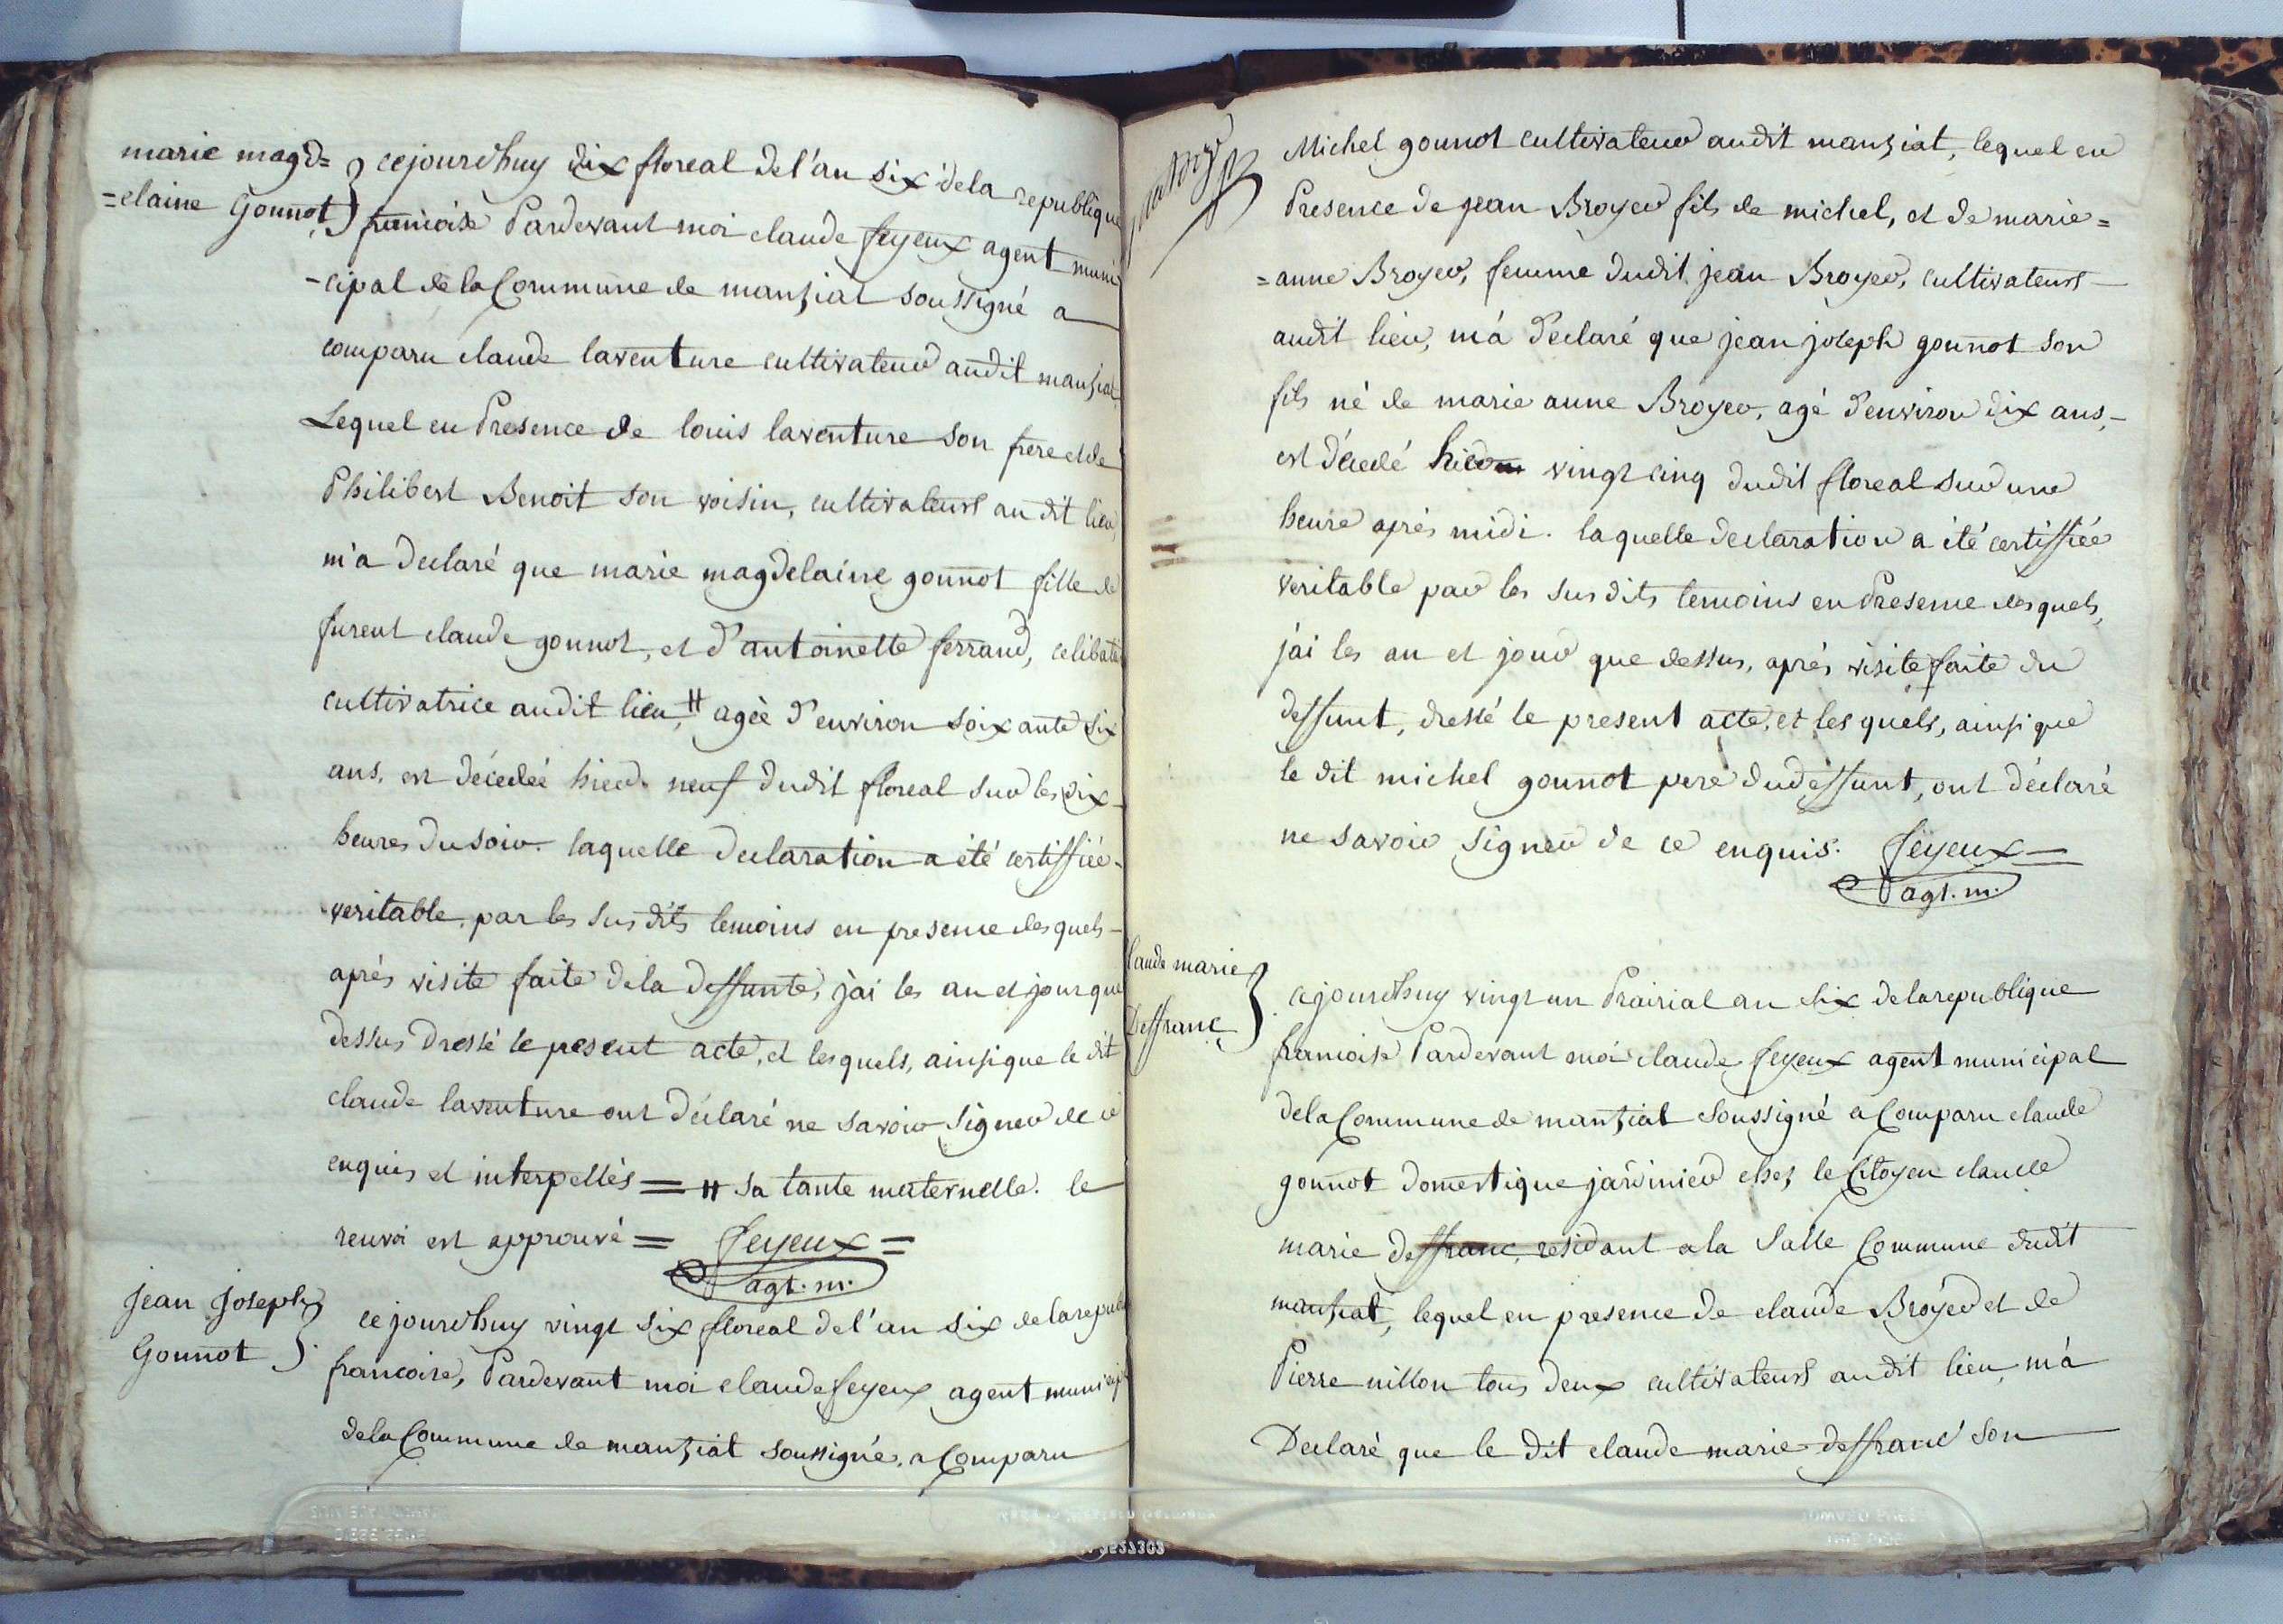 marie magd=
=elaine Gonnot
cejourdhuy dix floreal de l'an six de la republique
francoise Pardevant moi claude feyeux agent muni
-cipal de la Commune de manziat soussigné a
comparu claude laventure cultivateur audit manziat,
Lequel en Presence de louis laventure son frere et de
Philibert Benoit son voisin, cultivateurs audit lieu,
m'a declaré que marie magdelaine gonnot fille de
furent claude gonnot, et d'antoinette ferrand, celibatai
cultivatrice audit lieu, # agèe d'environ soixante six
ans, est décedée hier neuf dudit floreal sur les dix
heures du soir. laquelle declaration a été certiffiée
veritable par les sus dits temoins en presence desquels
après visite faite de la deffunte, j'ai les an et jour que
dessus dressé le present acte, et lesquels, ainsi que le dit
claude laventure ont déclaré ne savoir signer de ce
enquis et interpellés = # sa tante maternelle. le
renvoi est approuvé = feyeux =
agt. m.
Jean Joseph
Gonnot
ce jourdhuy vingt six floreal de l'an six de la repub
francoise, Pardevant moi claude feyeux agent municip
de la Commune de manziat soussigné, a Comparu
Michel gonnot cultivateur audit manziat, lequel en
Presence de jean Broyer fils de michel, et de marie=
=anne Broyer, femme dudit jean Broyer, cultivateurs
audit lieu, m'a déclaré que jean joseph gonnot son
fils né de marie anne Broyer, agé d'environ dix ans,
est décedé hier vingt cinq dudit floreal sur une
heure après midi. laquelle declaration a été certiffiée
veritable par les sus dits temoins en Presence desquels,
j'ai les an et jour que dessus, après visite faite du
deffunt, dressé le present acte, et les quels, ainsi que
le dit michel gonnot pere du deffunt, ont déclaré
ne savoir signer de ce enquis. feyeux =
agt. m.
laude marie
Deffranc
cejourdhuy vingt un Prairial an six de la republique
francoise Pardevant moi claude feyeux agent municipal
de la Commune de manziat soussigné a Comparu claude
gonnot domestique jardinier chez le Citoyen claude
marie deffranc, residant a la Salle Commune dudit
manziat, lequel en presence de claude Broyer et de
Pierre nillon tous deux cultivateurs audit lieu, m'a
Declaré que le dit claude marie deffranc son